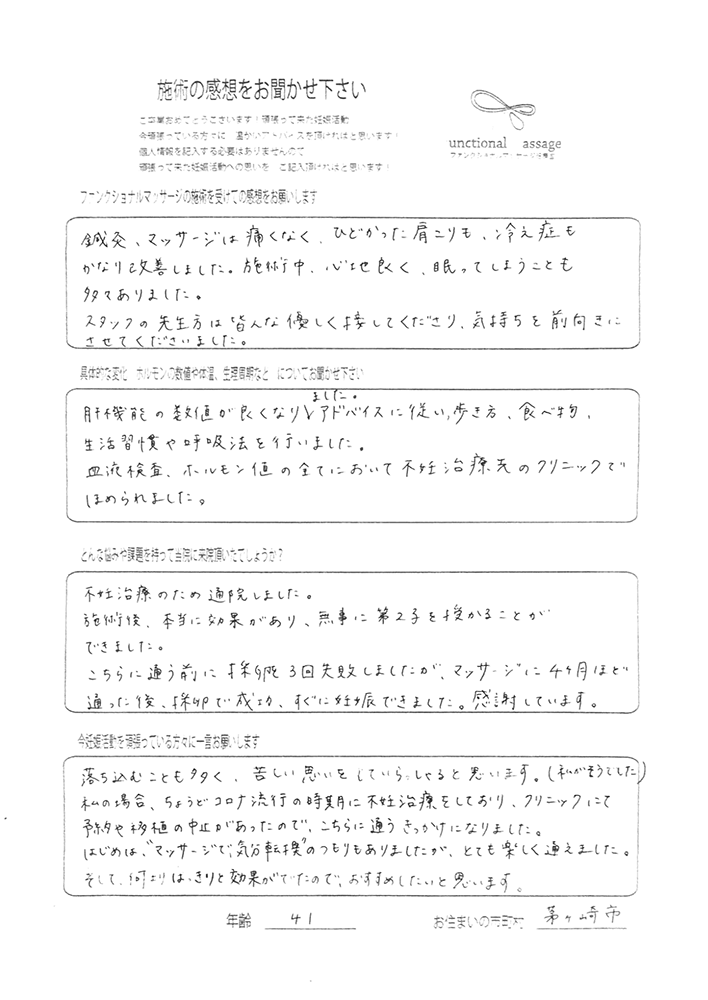 施術の感想をお聞かせ下さい
ご卒業おめでとうございます！頑張って来た妊娠活動
今頑張っている方々に　温かいアドバイスを頂ければと思います！
個人情報を記入する必要はありませんので
頑張って来た妊娠活動への思いを　ご記入頂ければと思います！
unctional assage
ファンクショナルマッサージ
ファンクショナルマッサージの施術を受けての感想をお願いします
鍼灸、マッサージは痛くなく、ひどかった肩こりも、冷え症も
かなり改善しました。施術中、心地良く、眠ってしまうことも
多々ありました。
スタッフの先生方は皆んな優しく接してくださり、気持ちを前向きに
させてくださいました。
具体的な変化　ホルモンの数値や体温、生理周期など　についてお聞かせ下さい
ました。
肝機能の数値が良くなり∨アドバイスに従い、歩き方、食べ物、
生活習慣や呼吸法を行いました。
血液検査、ホルモン値の全てにおいて不妊治療先のクリニックで
ほめられました。
どんな悩みや課題を持って当院に来院頂いたでしょうか？
不妊治療のため通院しました。
施術後、本当に効果があり、無事に第2子を授かることが
できました。
こちらに通う前に採卵を3回失敗しましたが、マッサージに4ヶ月ほど
通った後、採卵で成功、すぐに妊娠できました。感謝しています。
今妊娠活動を頑張っている方々に一言お願いします
落ち込むことも多く、苦しい思いをしていらっしゃると思います。(私がそうでした)
私の場合、ちょうどコロナ流行の時期に不妊治療をしており、クリニックにて
予約や移植の中止があったので、こちらに通うきっかけになりました。
はじめは、"マッサージで気分転換"のつもりもありましたが、とても楽しく通えました。
そして、何よりはっきりと効果がでたので、おすすめしたいと思います。
年齢　41　お住まいの市町村　茅ヶ崎市